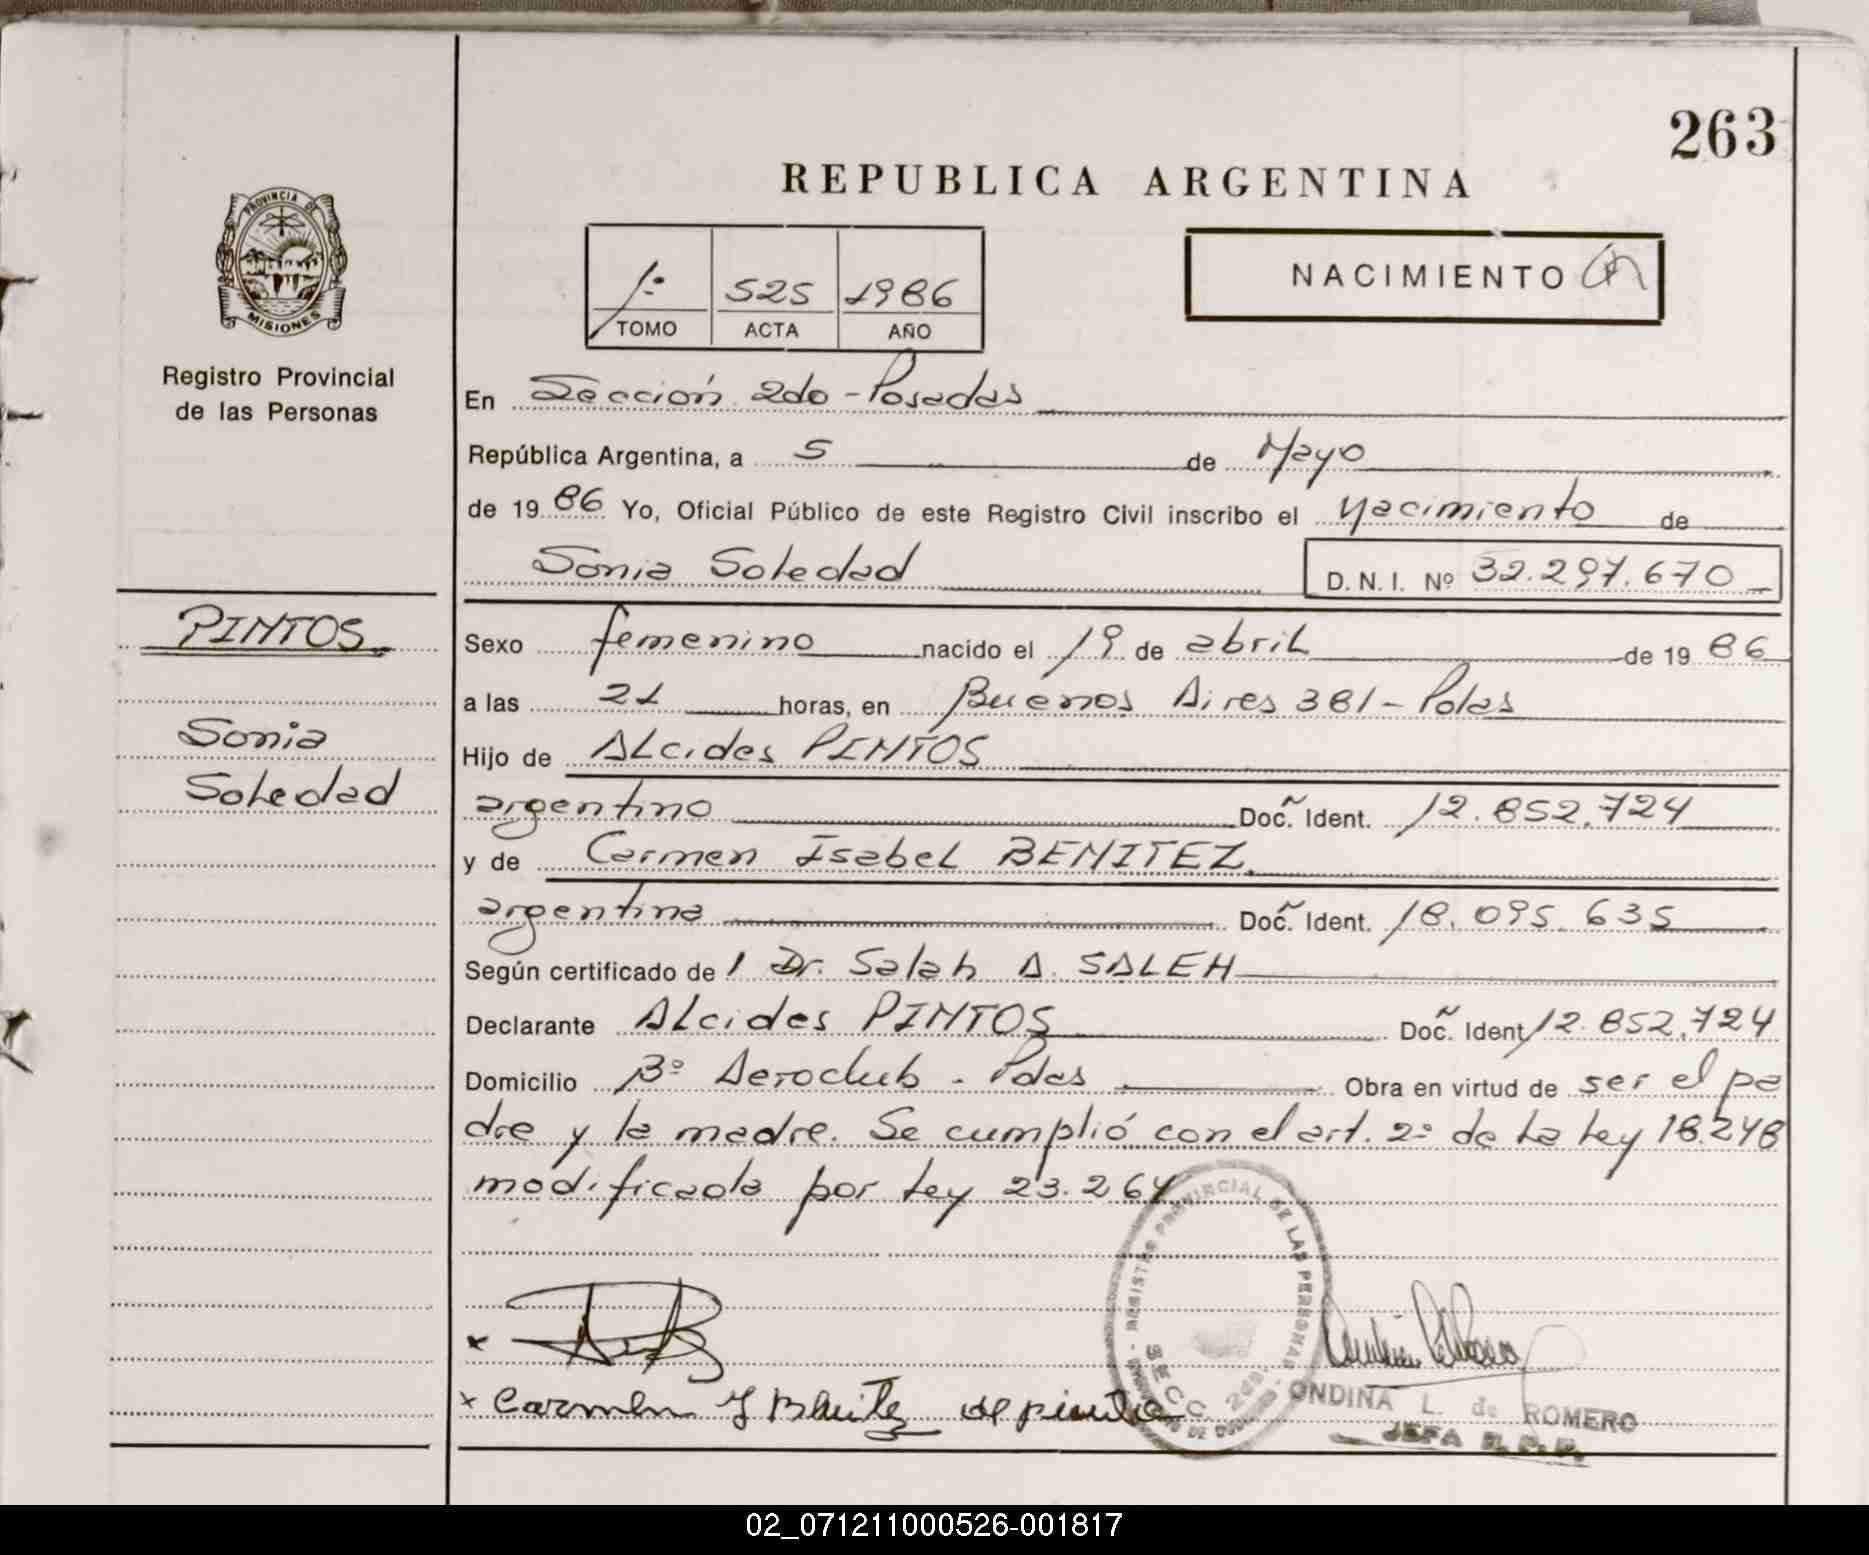 263
REPUBLICA ARGENTINA
PROVINCIA DE
MISIONES
Registro Provincial
de las Personas
1º 525 1986
TOMO ACTA AÑO
NACIMIENTO
En Sección 2da - Posadas
República Argentina, a 5 de Mayo
de 1986 Yo, Oficial Público de este Registro Civil inscribo el Nacimiento de
Sonia Soledad D.N.I. Nº 32.297.670
PINTOS
Sonia
Soledad
Sexo femenino nacido el 19 de abril de 1986
a las 21 horas, en Buenos Aires 381 - Pdas
Hijo de Alcides PINTOS
argentino Doc. Ident. 12.852.724
y de Carmen Isabel BENITEZ
argentina Doc. Ident. 18.095.635
Según certificado de 1 Dr. Salah A. SALEH
Declarante Alcides PINTOS Doc. Ident 12.852.724
Domicilio Bº Aeroclub - Pdas Obra en virtud de ser el pa
dre y la madre. Se cumplió con el art. 2º de la Ley 18.248
modificada por Ley 23.264
REGISTRO PROVINCIAL DE LAS PERSONAS
SECC. 2da.
x
x Carmen I Benitez de pintos
ONDINA L. de ROMERO
JEFA R. P. P.
02_071211000526-001817